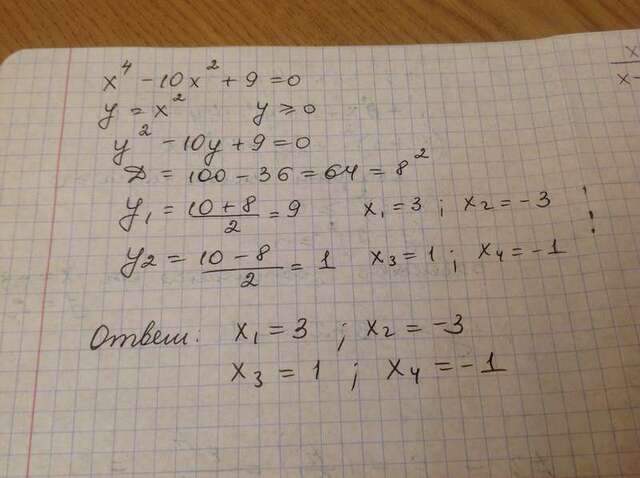 x⁴ - 10x² + 9 = 0
y = x² y ≥ 0
y² - 10y + 9 = 0
D = 100 - 36 = 64 = 8²
y₁ = (10 + 8)/2 = 9 x₁ = 3 ; x₂ = -3 ;
y₂ = (10 - 8)/2 = 1 x₃ = 1 ; x₄ = -1
Ответ: x₁ = 3 ; x₂ = -3
x₃ = 1 ; x₄ = -1